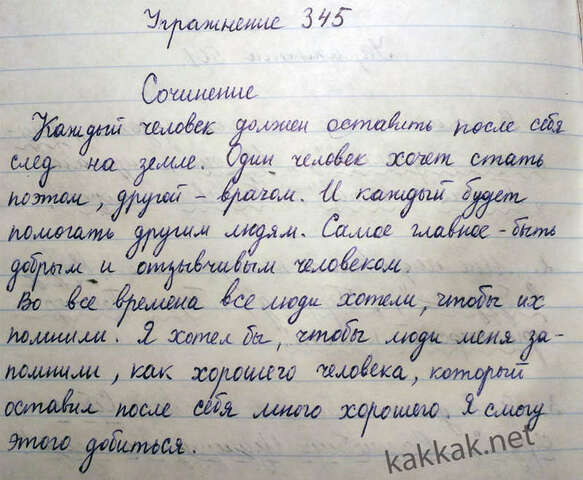 Упражнение 345
Сочинение
Каждый человек должен оставить после себя
след на земле. Один человек хочет стать
поэтом, другой - врачом. И каждый будет
помогать другим людям. Самое главное - быть
добрым и отзывчивым человеком.
Во все времена все люди хотели, чтобы их
помнили. Я хотел бы, чтобы люди меня за-
помнили, как хорошего человека, который
оставил после себя много хорошего. Я смогу
этого добиться.
kakkak.net